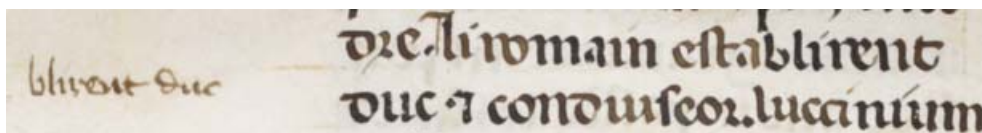 blirent duc
dre. li romain establirent
duc ⁊ conduiseor. luccinium